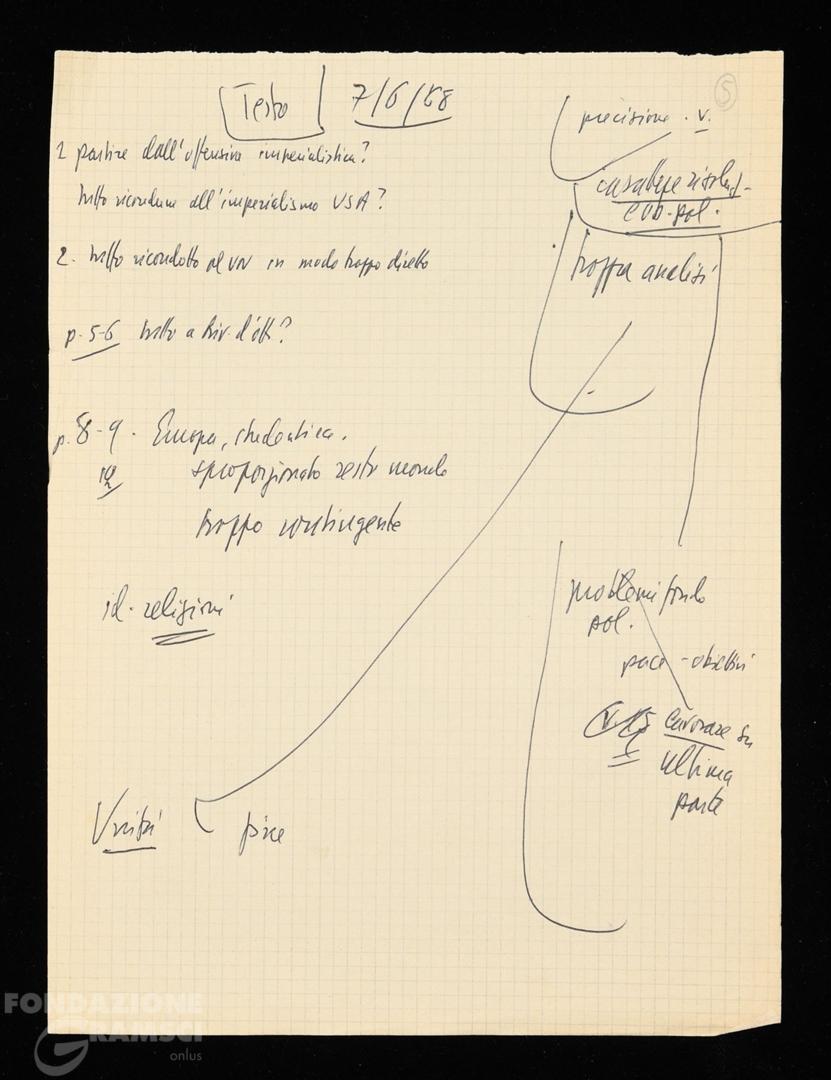 Testo 7/6/68
5
1 partire dall'offensiva imperialistica?
tutto ricondurre all'imperialismo USA?
2. tutto ricondotto al VN in modo troppo diretto
p. 5-6 tutto a Riv. d'ott?
p. 8-9. Europa, studentica.
10 sproporzionato resto mondo
troppo contingente
id. religioni
Unità pace
precisione. v.
pol.
troppa analisi
problemi fondo
pol.
pace - obiettivi
lavorare su
ultima
parte
FONDAZIONE
GRAMSCI
onlus